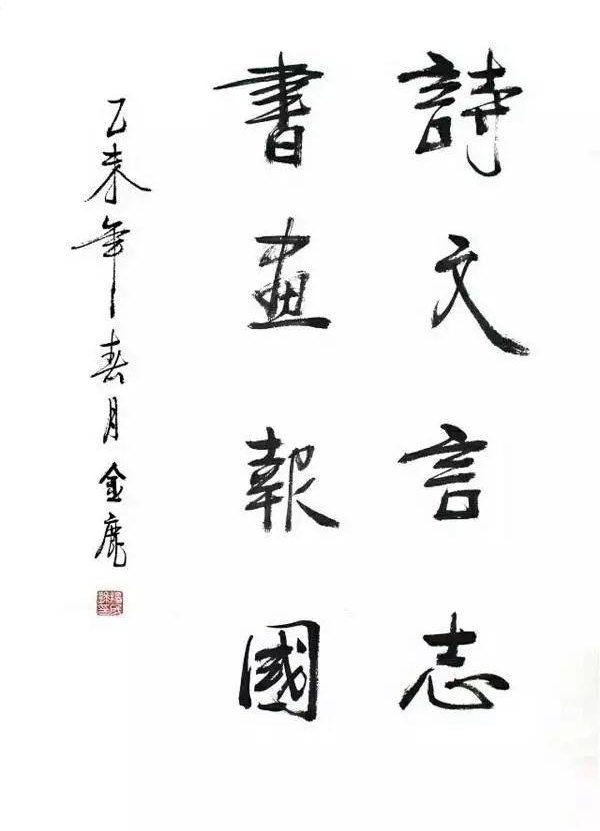 詩文言志
書畫報國
乙未年春月金鹿